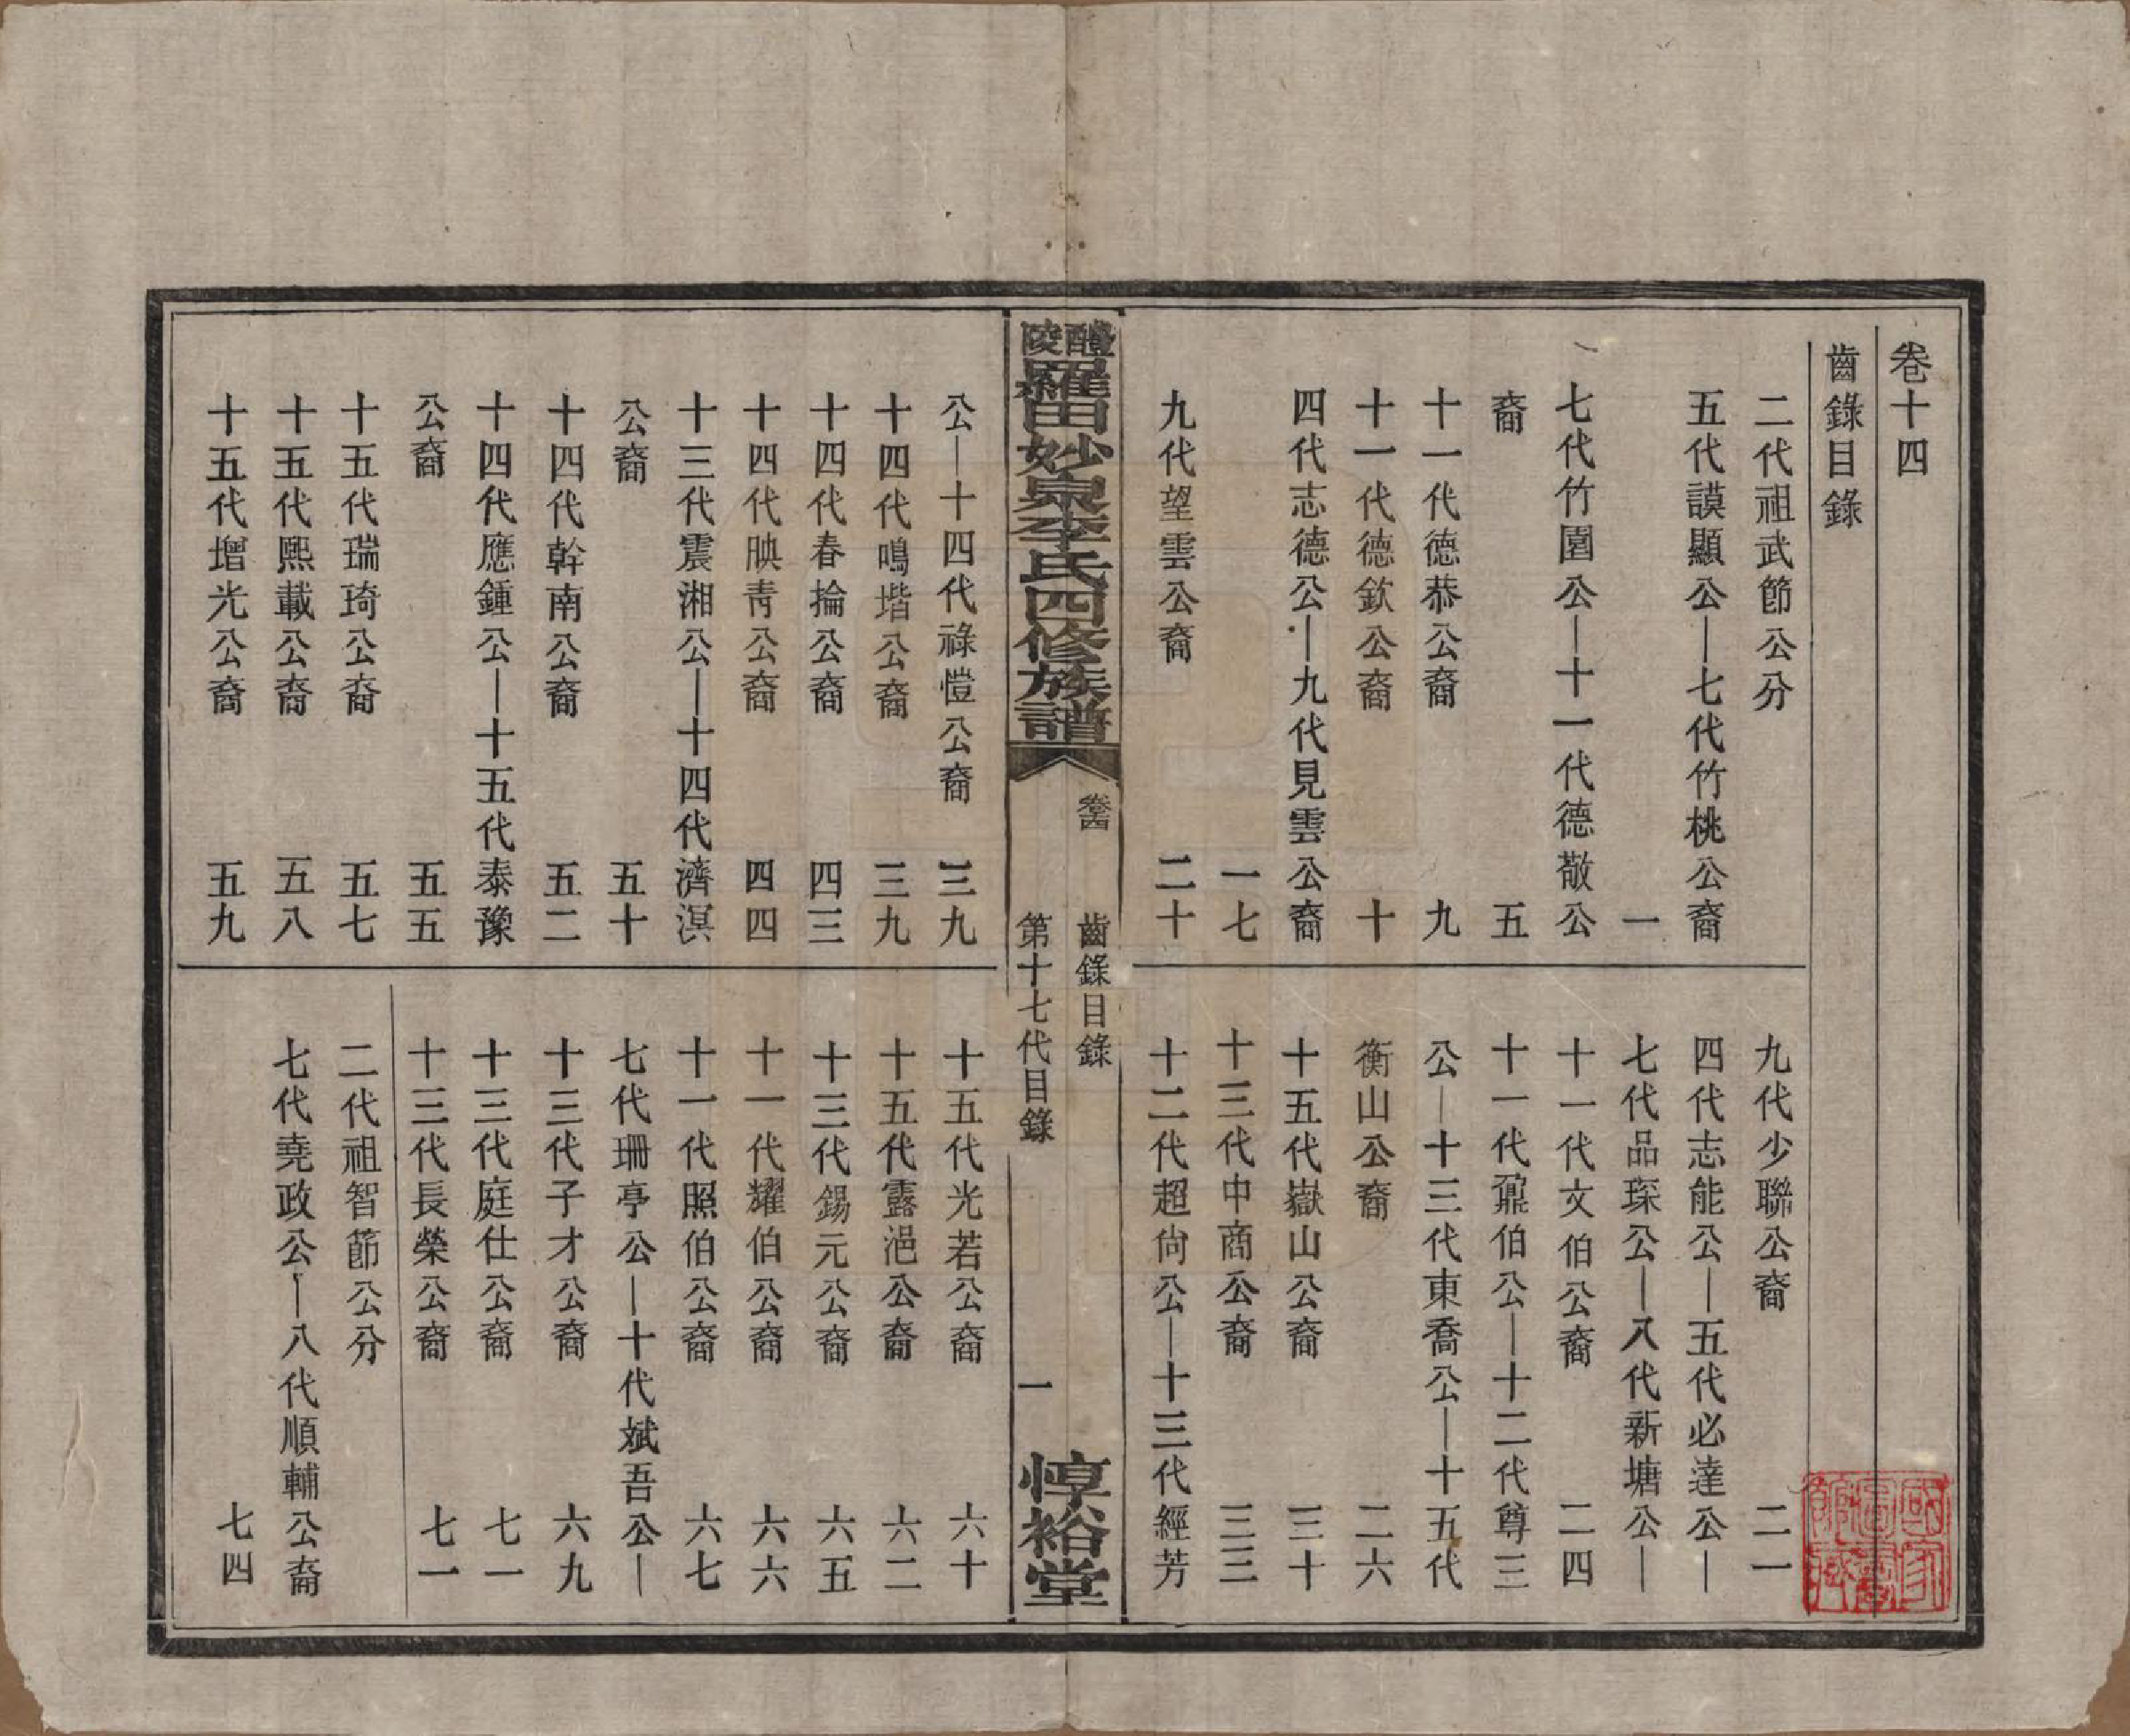 卷十四
齒錄目錄
二代祖武節公分
五代謨顯公—七代竹桃公裔
一
七代竹園公—十一代德敬公
裔 五
十一代德恭公裔 九
十一代德欽公裔 十
四代志德公—九代見雲公裔
一七
九代望雲公裔 二十
九代少聯公裔 二一
四代志能公—五代必達公—
七代品琛公—八代新塘公—
十一代文伯公裔 二四
十一代鼐伯公—十二代尊三
公—十三代東喬公—十五代
衡山公裔 二六
十五代嶽山公裔 三十
十三代中商公裔 三三
十二代超尙公—十三代經芳
醴陵羅田妙泉李氏四修族譜
卷十四 齒錄目錄
第十七代目錄 一
惇裕堂
公—十四代祿愷公裔 三九
十四代鳴堦公裔 三九
十四代春掄公裔 四三
十四代映靑公裔 四四
十三代震湘公—十四代濟溟
公裔 五十
十四代幹南公裔 五二
十四代應鍾公—十五代泰豫
公裔 五五
十五代瑞琦公裔 五七
十五代熙載公裔 五八
十五代增光公裔 五九
十五代光若公裔 六十
十五代露浥公裔 六二
十三代錫元公裔 六五
十一代耀伯公裔 六六
十一代照伯公裔 六七
七代珊亭公—十代斌吾公—
十三代子才公裔 六九
十三代庭仕公裔 七一
十三代長榮公裔 七一
二代祖智節公分
七代堯政公—八代順輔公裔
七四
國家圖書館藏